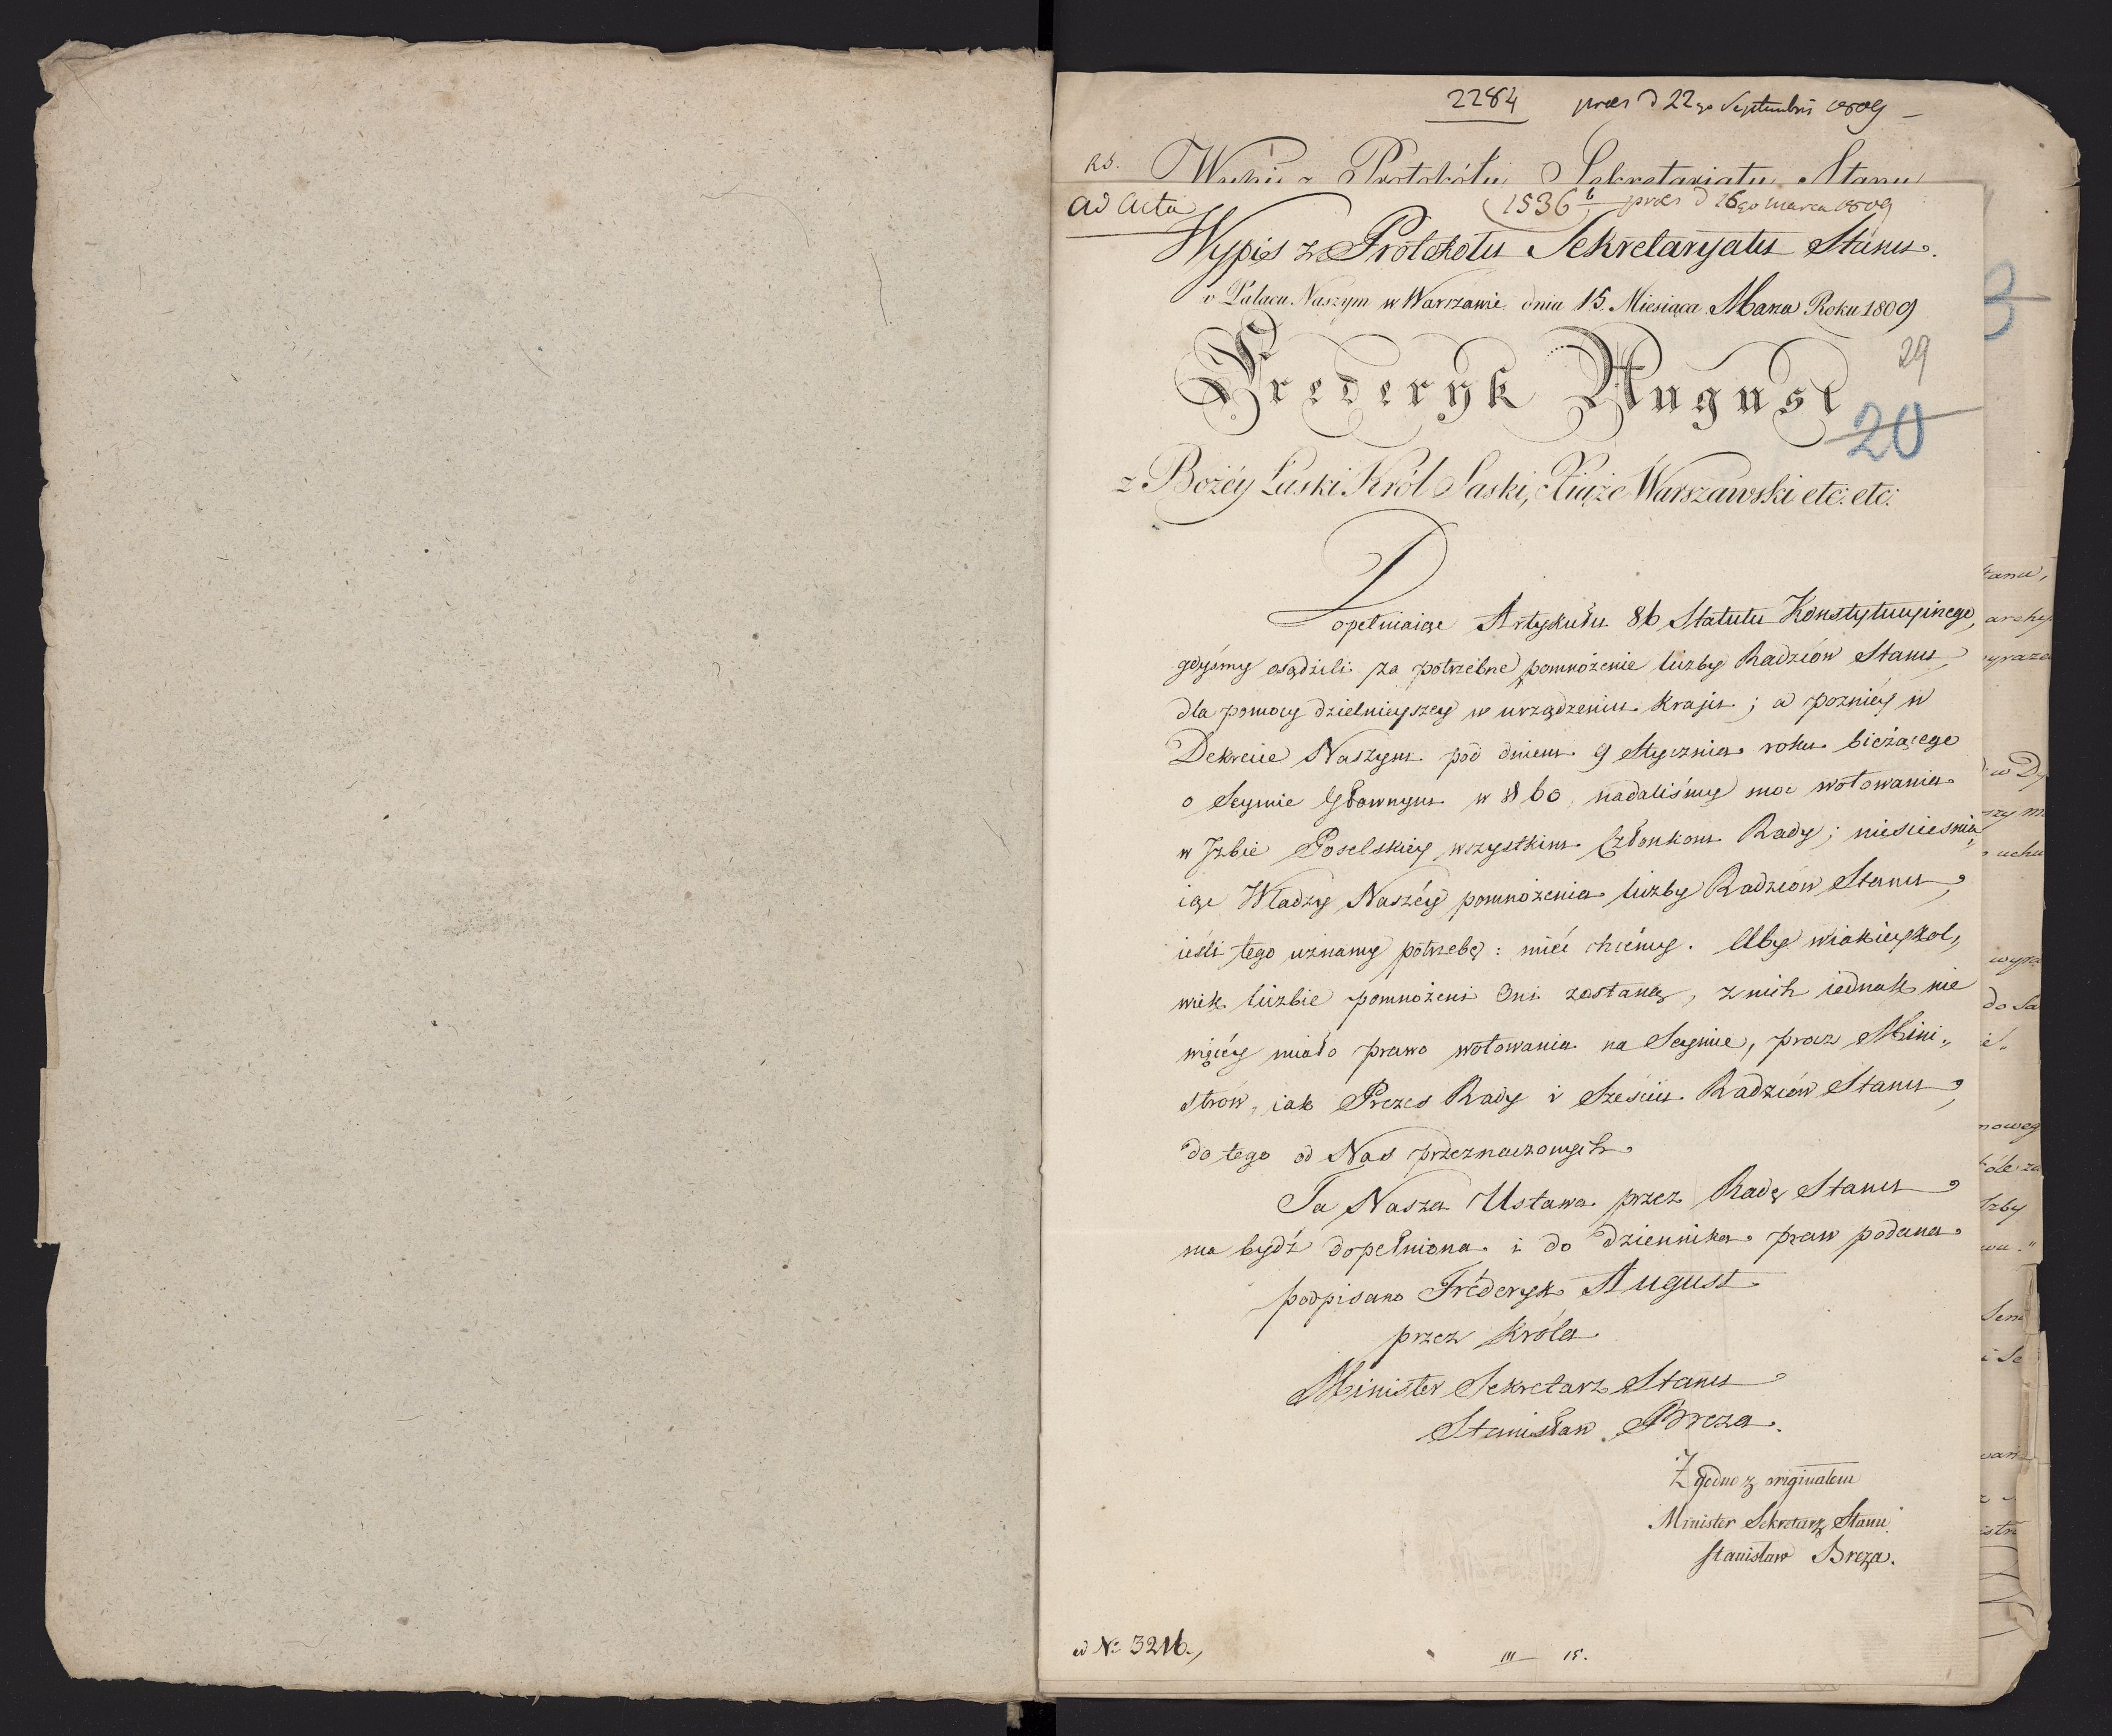 2284 præs d 22go Septembris 1809
RS. Wypis z Protokółu Sekretariatu Stanu
ad acta 1536 b præs d 26go marca 1809
Wypis z Protokołu Sekretaryatu Stanu.
w Pałacu Naszym w Warszawie dnia 15. Miesiąca Marca Roku 1809
3
29
Frederyk August
20
z Bożéy Łaski Król Saski, Xiąże Warszawski etc: etc:
Dopełniaiąc Artykułu 86 Statutu Konstytucyinego,
gdyśmy osądzili za potrzebne pomnożenie liczby Radzców Stanu,
dla pomocy dzielnieyszey w urządzeniu kraju; a pozniey w
Dekrecie Naszym pod dniem 9 Stycznia roku bieżącego
o Seymie Głownym w § 60, nadaliśmy moc wotowania
w Izbie Poselskiey wszystkim Członkom Rady; nieściesnia„
iąc Władzy Naszéy pomnożenia liczby Radzców Stanu,
ieśli tego uznamy potrzebę: mieć chcemy. Aby w iakieykol„
wiek liczbie pomnożeni Oni zostaną, z nich iednak nie
więcéy miało prawo wotowania na Seymie, prócz Mini„
strów, iak Prezes Rady i Sześciu Radzców Stanu,
do tego od Nas przeznaczonych.
Ta Nasza Ustawa przez Radę Stanu
ma bydź dopełniona i do dziennika praw podana.
podpisano Fréderyk August
przez Króla
Minister Sekretarz Stanu
Stanisław Breza.
Zgodno z originałem
Minister Sekretarz Stanu
Stanisław Breza.
ad No 3216.,
III — 15.
stanu,
wyraz
w Dy
do Sa
noweg
Izby